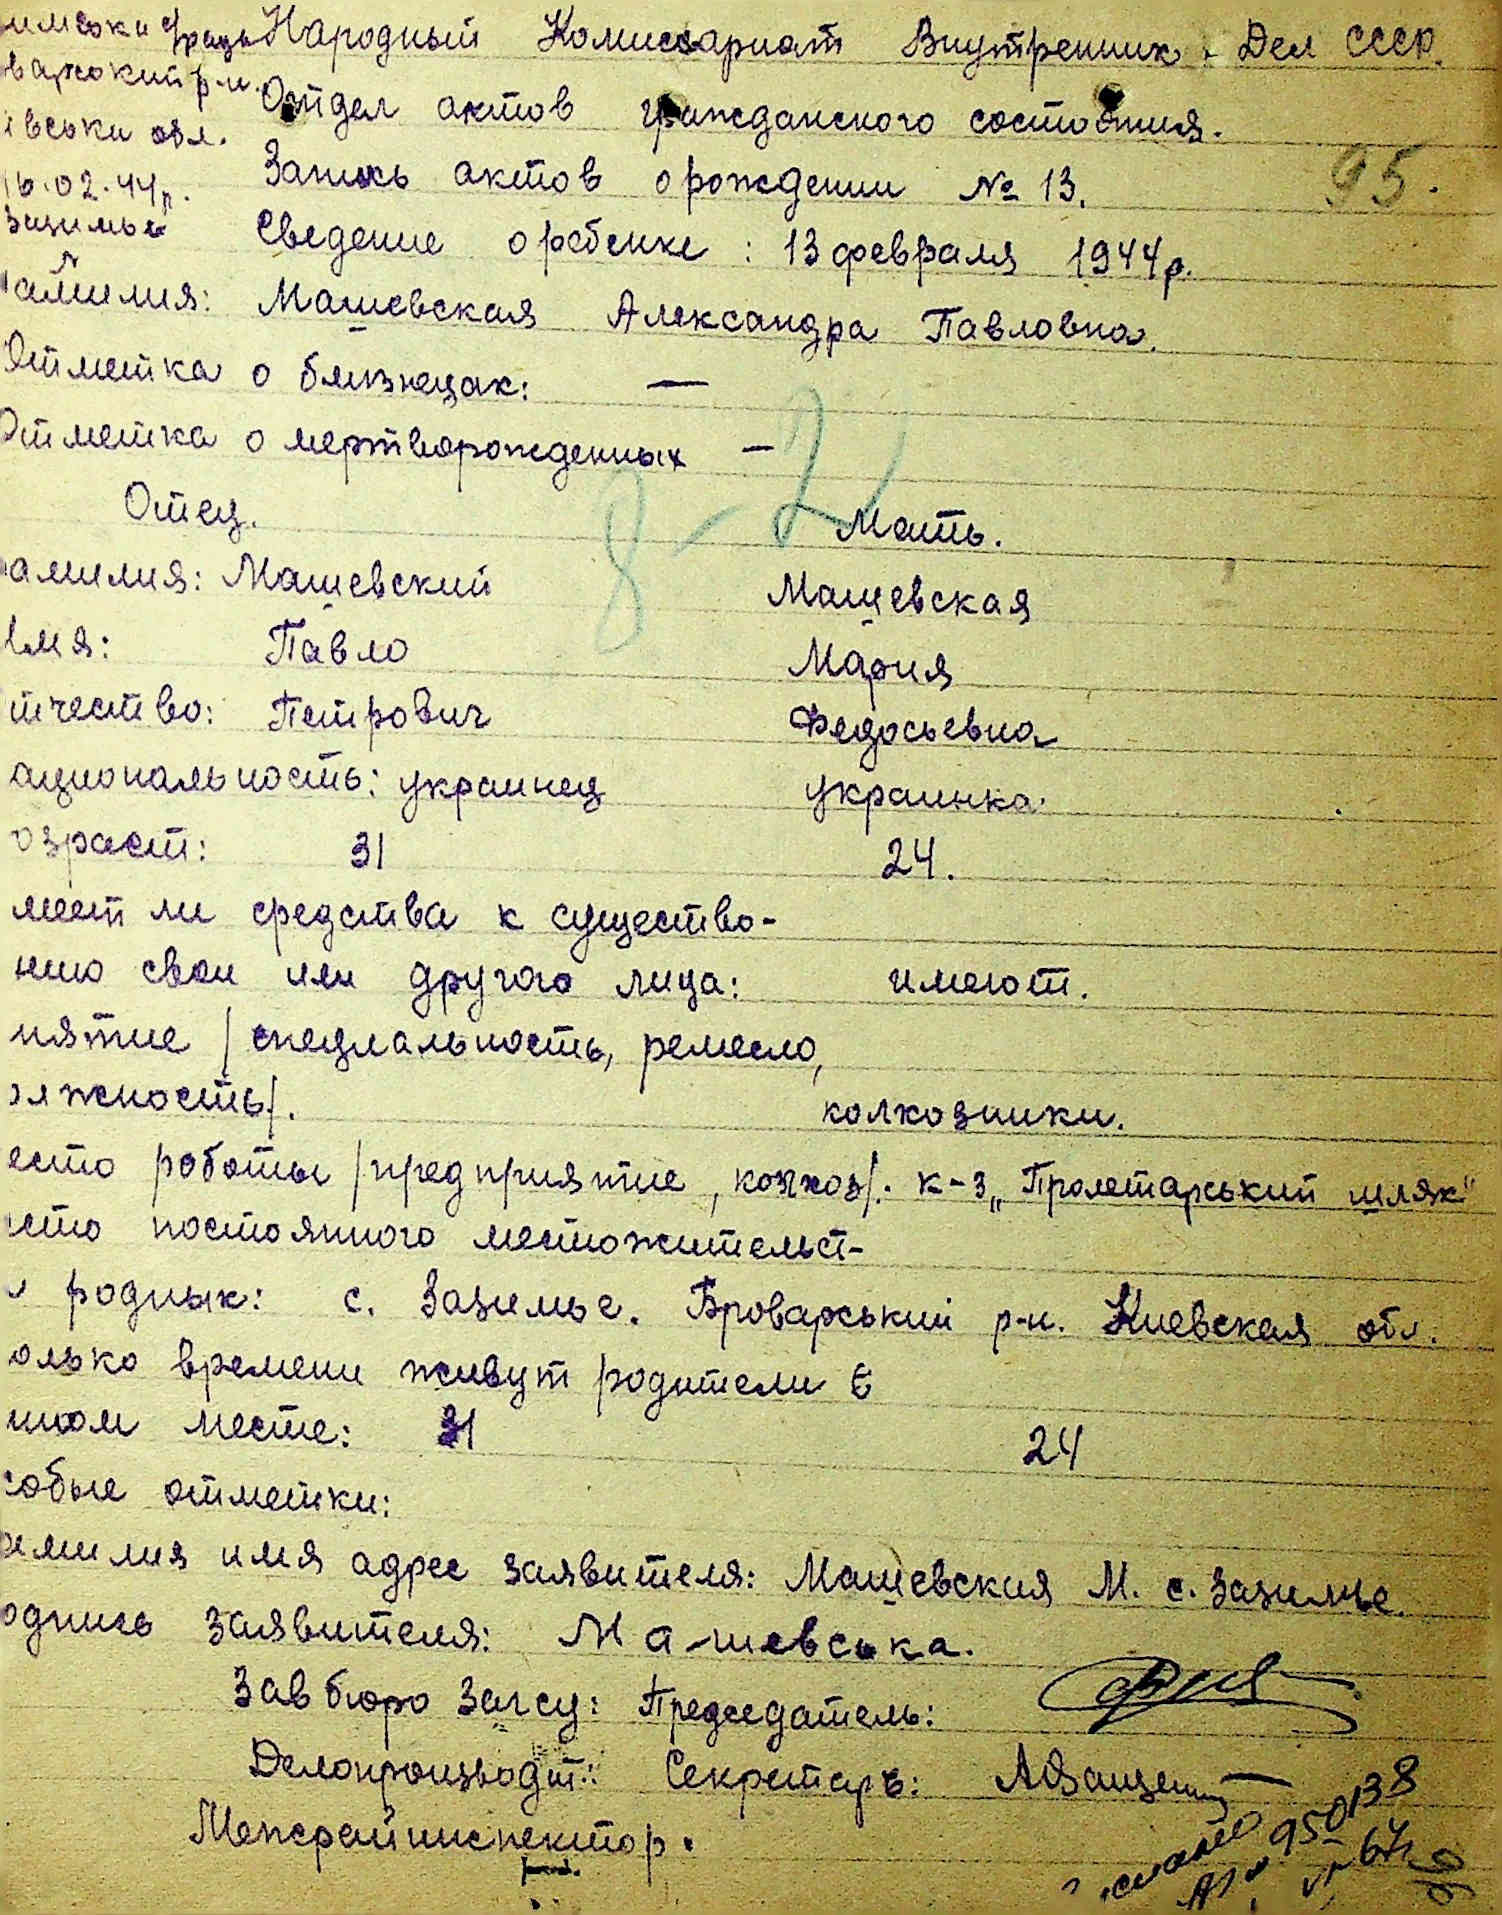 Народный Комиссариат Внутренних Дел СССР.
Отдел актов гражданского состояния.
івськи обл.
Запись актов о рождении № 13.
95.
16.02.44р.
Зазимье
Сведение о ребенке: 13 февраля 1944р.
амилия: Машевская Александра Павловна.
Отметка о близнецах: —
Отметка о мертворожденных —
8-2
Отец. Мать.
амилия: Машевский Машевская
имя: Павло Мария
тчество: Петрович Федосьевна
ациональность: украинец украинка.
озраст: 31 24.
меет ли средства к существо-
нию свои или другого лица: имеют.
нятие /специальность, ремесло,
олжность/. колхозники.
есто работы /предприятие, колхоз/. к-з „Пролетарський шлях"
есто постоянного местожительст-
родных: с. Зазимье. Броварський р-н. Киевская обл.
олько времени живут родители в
ином месте: 31 24
собые отметки:
амилия имя адрес заявителя: Машевская М. с. Зазимье.
одпись заявителя: Машевська.
Зав бюро Загсу: Председатель:
Делопроизводт.: Секретарь:
Межрайинспектор.
950138